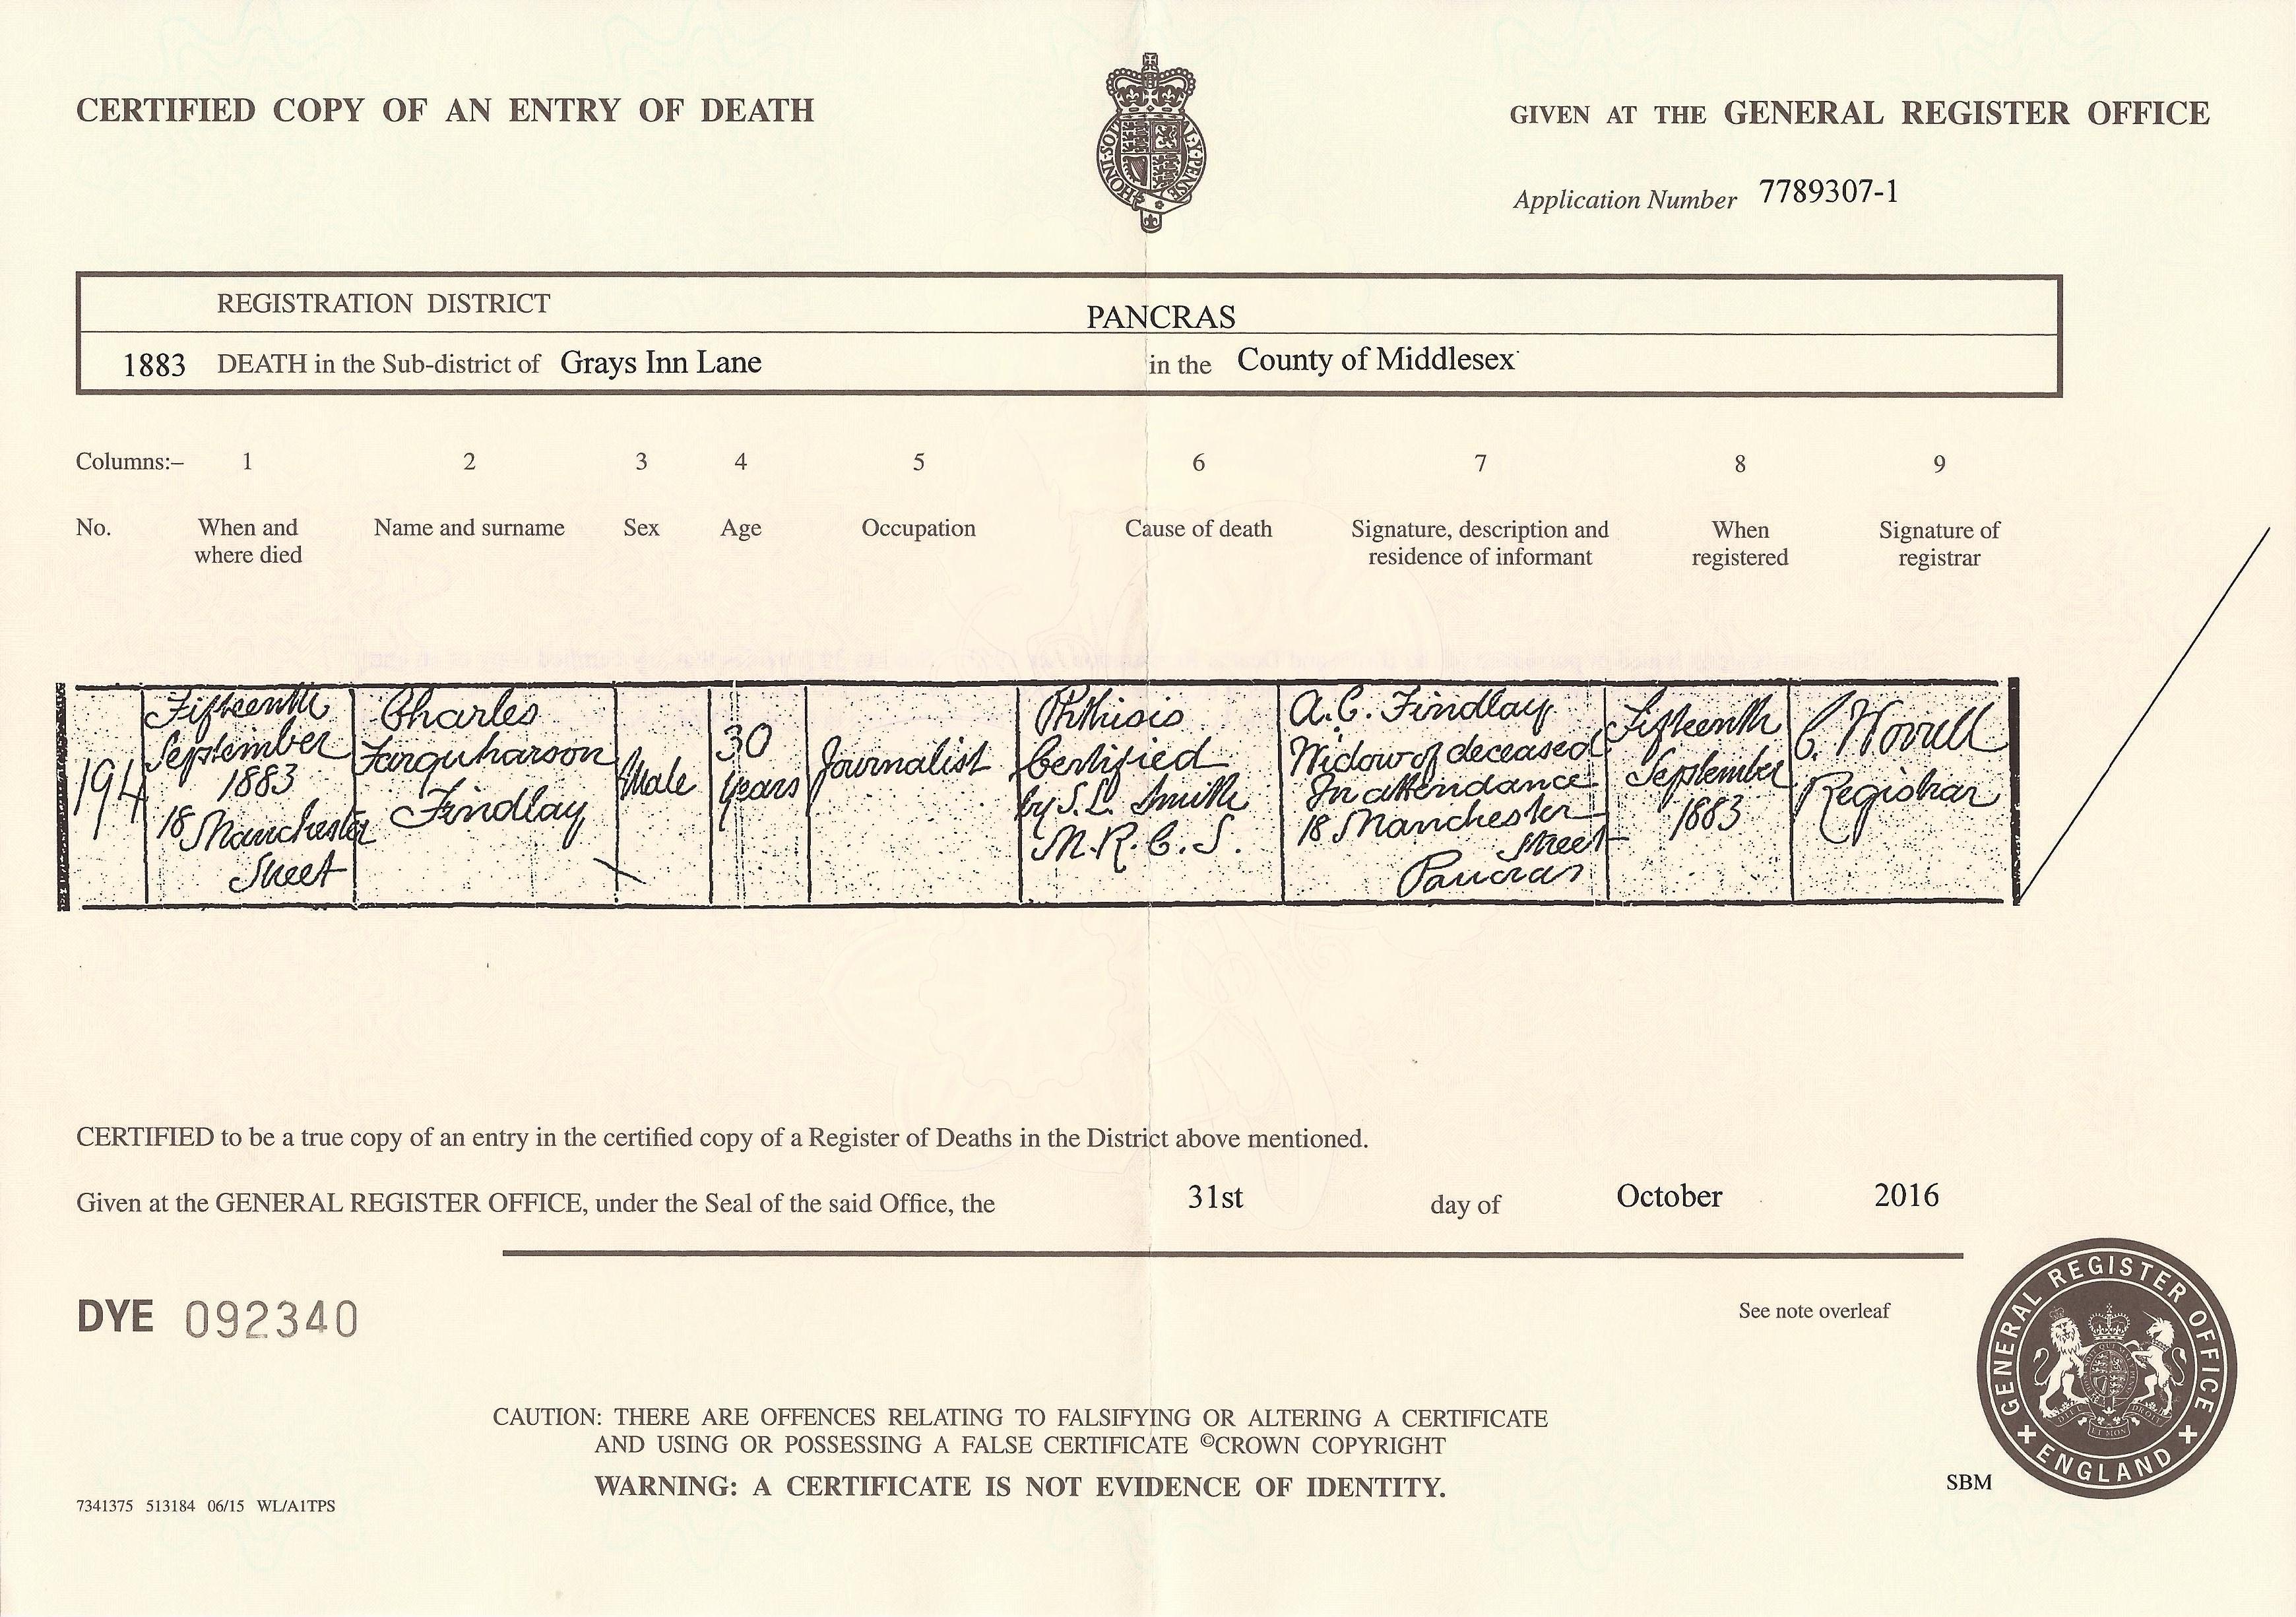 CERTIFIED COPY OF AN ENTRY OF DEATH
HONI·SOI AL·Y·PENSE
GIVEN AT THE GENERAL REGISTER OFFICE
Application Number 7789307-1
REGISTRATION DISTRICT PANCRAS
1883 DEATH in the Sub-district of Grays Inn Lane in the County of Middlesex
Columns:– 1 2 3 4 5 6 7 8 9
No.
When and
where died
Name and surname
Sex
Age
Occupation
Cause of death
Signature, description and
residence of informant
When
registered
Signature of
registrar
194
Fifteenth
September
1883
18 Manchester
Street
Charles
Farquharson
Findlay
Male
30
years
Journalist
Phthisis
Certified
by S. L. Smith
M.R.C.S.
A. C. Findlay
Widow of deceased
In attendance
18 Manchester
Street
Pancras
Fifteenth
September
1883
C. Worrell
Registrar
CERTIFIED to be a true copy of an entry in the certified copy of a Register of Deaths in the District above mentioned.
Given at the GENERAL REGISTER OFFICE, under the Seal of the said Office, the 31st day of October 2016
DYE 092340
See note overleaf
GENERAL REGISTER OFFICE
ENGLAND
CAUTION: THERE ARE OFFENCES RELATING TO FALSIFYING OR ALTERING A CERTIFICATE
AND USING OR POSSESSING A FALSE CERTIFICATE ©CROWN COPYRIGHT
WARNING: A CERTIFICATE IS NOT EVIDENCE OF IDENTITY.
SBM
7341375 513184 06/15 WL/A1TPS